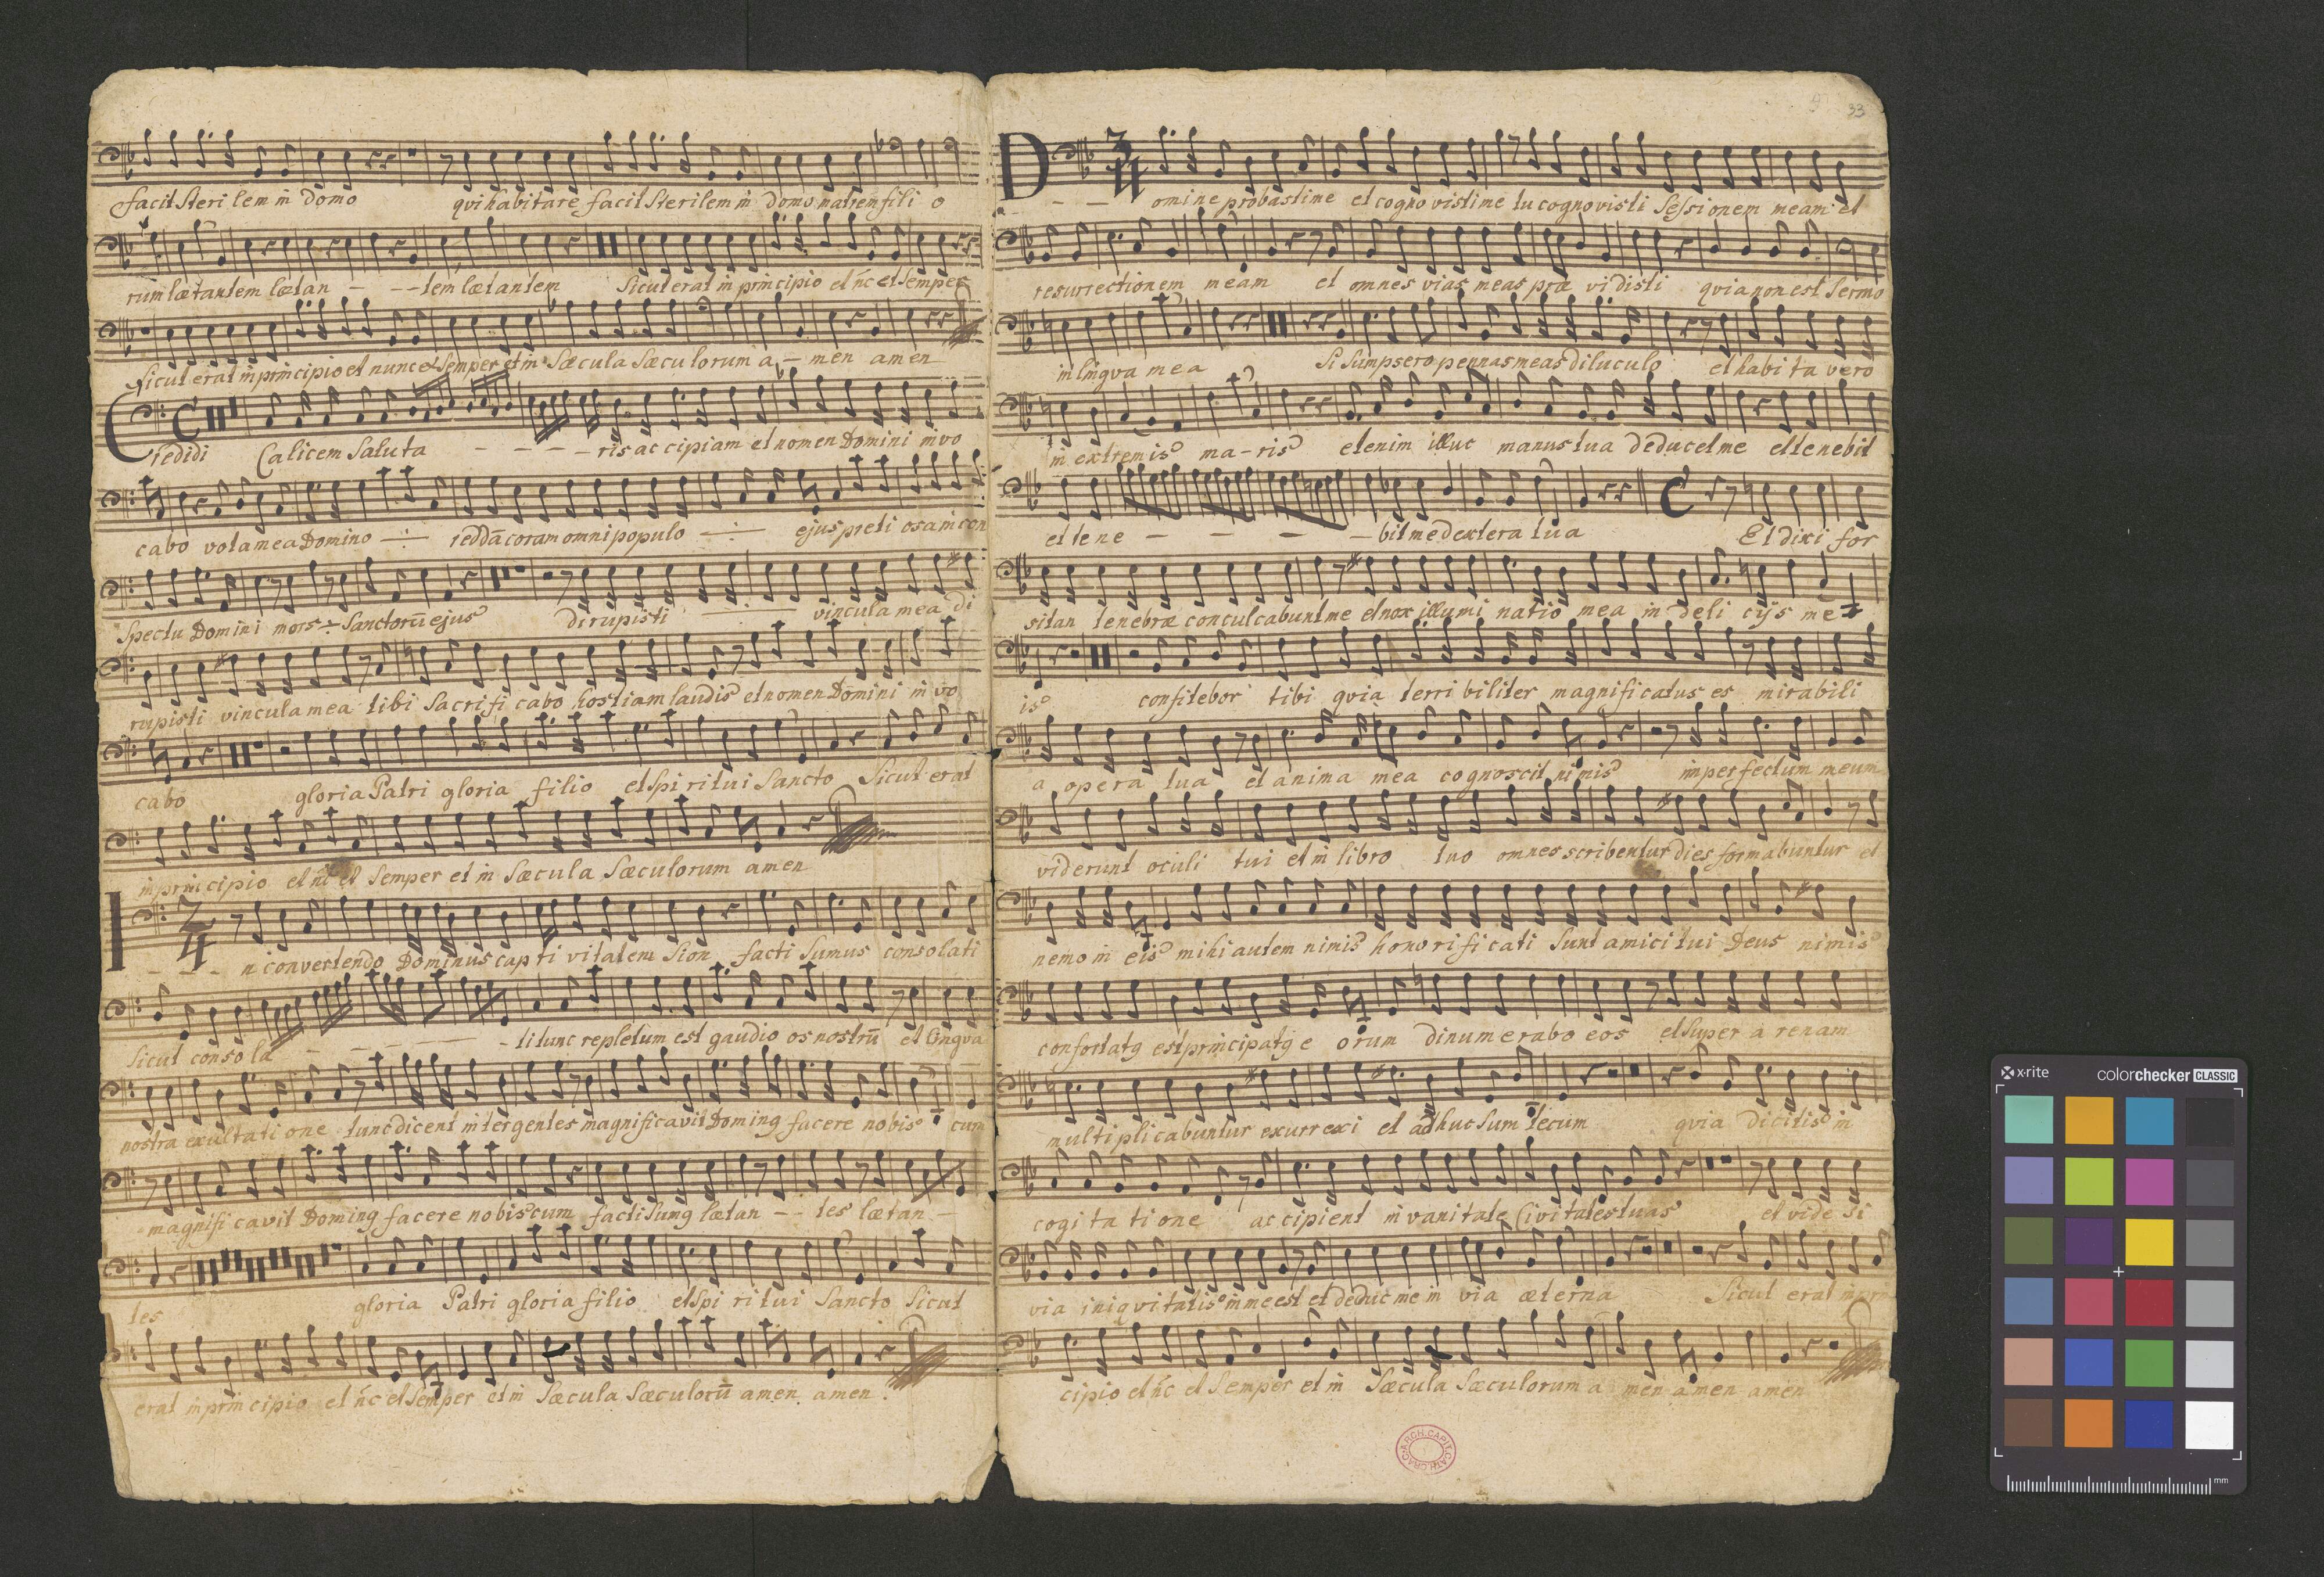 facit sterilem in domo qui habitare facit sterilem in domo matrem filio
rum lætantem lætan - - - tem lætantem Sicut erat in principio et nc et semper
Sicut erat in principio et nunc et semper et in Sæcula Sæculorum a - men amen
Credidi Calicem Saluta - - - - ris accipiam et nomen Domini invo
cabo vota mea Domino -÷- reddā coram omni populo -÷- ejus pretiosa in con
spectu Domini mors ÷ Sanctorū ejus dirupisti ÷ vincula mea di
rupisti vincula mea tibi Sacrificabo hostiam laudis et nomen Domini invo
cabo gloria Patri gloria filio et Spiritui Sancto Sicut erat
in principio et nc et Semper et in Sæcula Sæculorum amen
I 3/4
- - - n convertendo Dominus captivitatem Sion facti Sumus consolati
Sicut consola - - - - - - ti tunc repletum est gaudio os nostrū et lingva
nostra exultatione tunc dicent inter gentes magnificavit Doming facere nobis cum
magnificavit Doming facere nobiscum facti Sumg lætan - - tes lætan -
tes gloria Patri gloria filio et Spiritui Sancto Sicut
erat in principio et nc et Semper et in Sæcula Sæculorū amen amen.
33
D 3/4
- - omine probasti me et cognovisti me tu cognovisti Sessionem meam et
resurrectionem meam et omnes vias meas prævidisti qvia non est Sermo
in lingva mea Si Sumpsero pennas meas diluculo et habitavero
in extremis ma - ris etenim illuc manus tua deducet me et tenebit
et tene - - - - bit me dextera tua Et dixi for
sitan tenebræ conculcabunt me et nox illuminatio mea in delicijs me
is confitebor tibi qvia terribiliter magnificatus es mirabili
a opera tua et anima mea cognoscit nimis imperfectum meum
viderunt oculi tui et in libro tuo omnes scribentur dies formabuntur et
nemo in eis mihi autem nimis honorificati Sunt amici tui Deus nimis
confortatg est principatg eorum dinumerabo eos et Super arenam
multiplicabuntur exurrexi et adhuc Sum tecum qvia dicitis in
cogitatione accipient in vanitate Civitates tuas et vide Si
via iniqvitatis in me est et deduc me in via æterna Sicut erat in prin
cipio et nc et Semper et in Sæcula Sæculorum a men amen amen
ARCH. CAPIT. CATH. CRAC.
x·rite colorchecker CLASSIC
mm